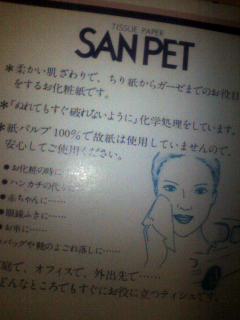 TISSUE PAPER
SANPET
＊柔かい肌ざわりで、ちり紙からガーゼまでのお役目
をするお化粧紙です。
＊「ぬれてもすぐ破れないように」化学処理をしています。
＊紙パルプ100%で故紙は使用していませんので、
安心してご使用ください。
●お化粧の時に
●ハンカチの代りに
●赤ちゃんに……
●眼鏡ふきに……
●お車に……
バッグや靴のよごれ落しに……
庭で、オフィスで、外出先で……
どんなところでもすぐにお役に立つティシュです。